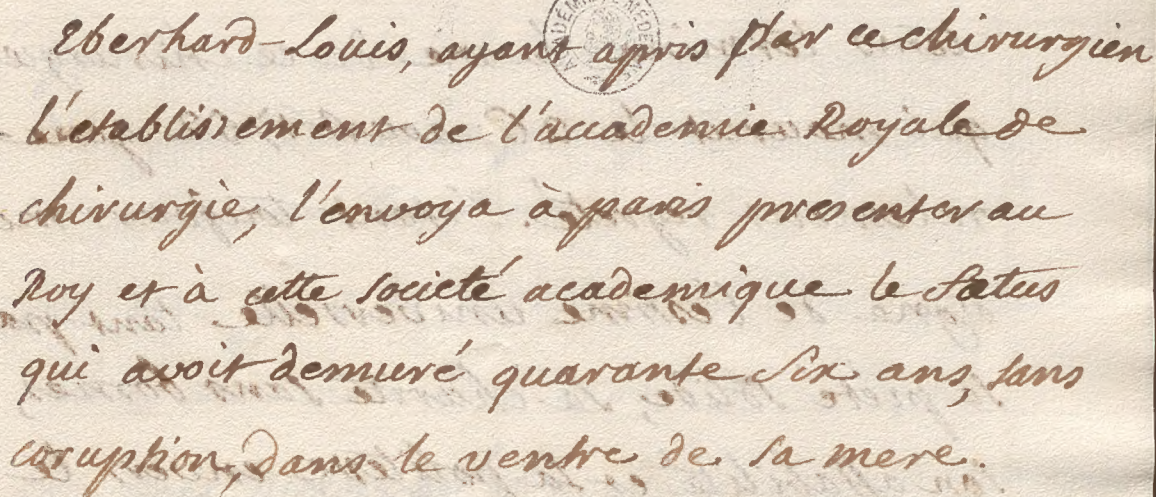 Eberhard-Louis, ayant apris par ce chirurgien
l'etablissement de l'accademie Royale de
chirurgie, l'envoya à paris presenter au
Roy et à cette societé academique le fœtus
qui avoit demuré quarante six ans, sans
coruption, dans le ventre de sa mere.